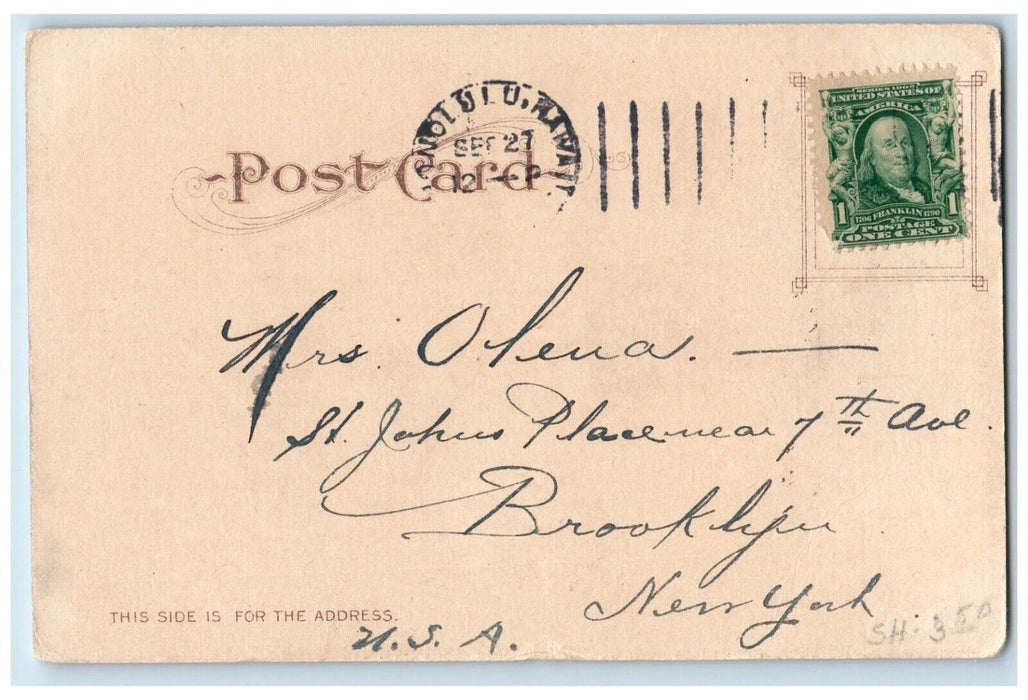 HONOLULU, HAWAII.
SEP 27
12 — P
Post Card
SERIES 1902
UNITED STATES OF
AMERICA
1 1
1706 FRANKLIN 1790
POSTAGE
ONE CENT
Mrs. Olena. —
St. Johns Place near 7th Ave.
Brooklyn
New York
THIS SIDE IS FOR THE ADDRESS.
U.S.A.
SH. 3 50